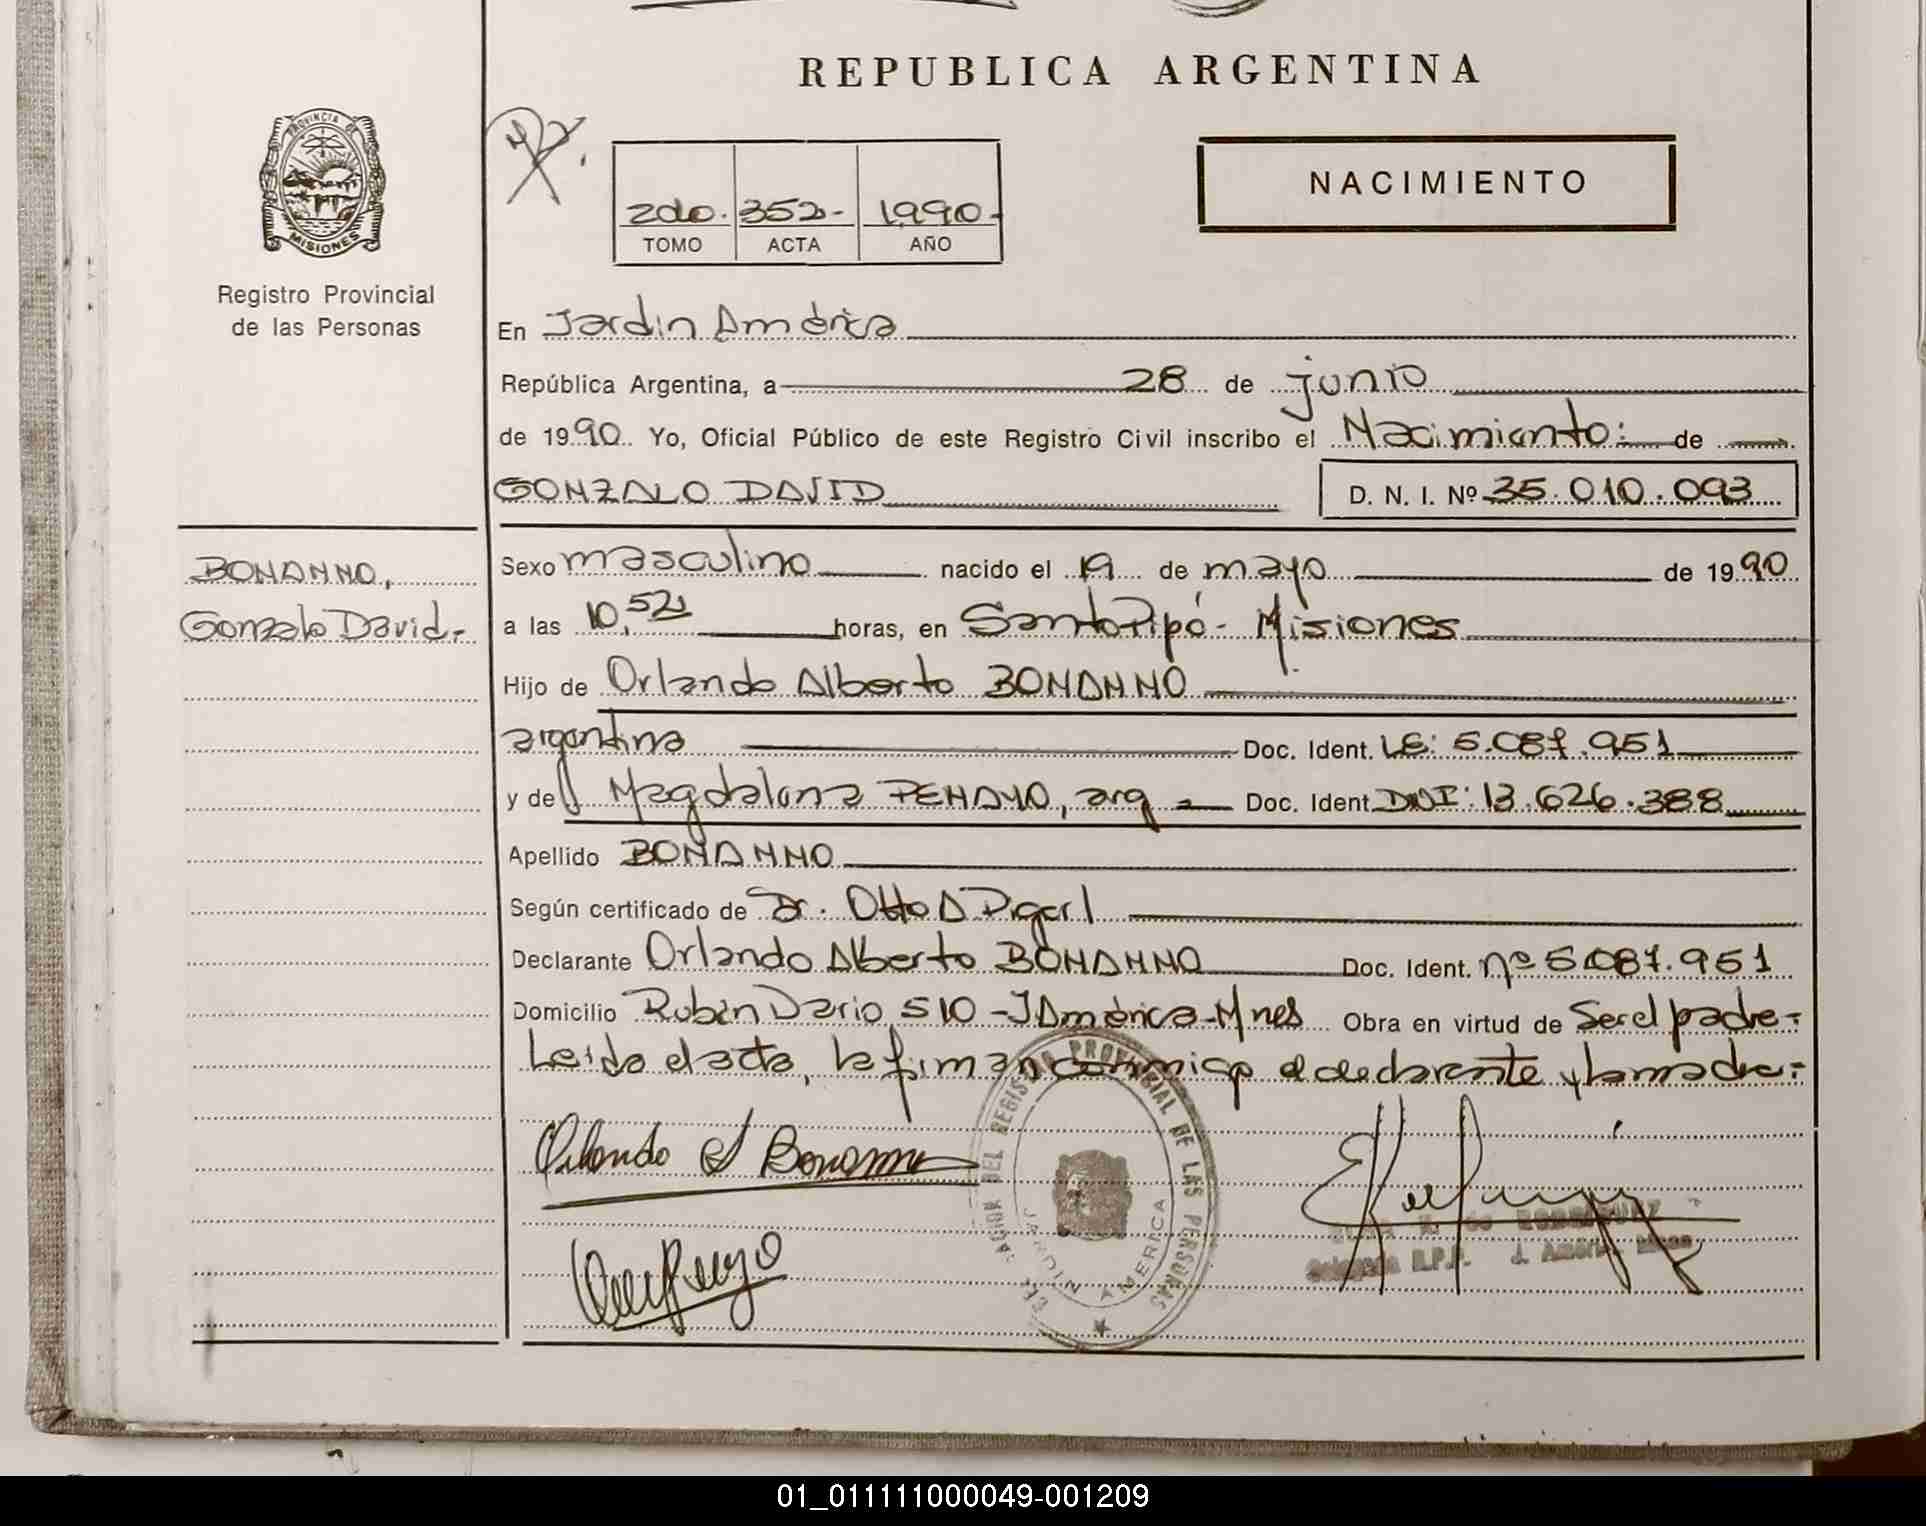 REPUBLICA ARGENTINA
PROVINCIA DE
MISIONES
Registro Provincial
de las Personas
2do. 352- 1990-
TOMO ACTA AÑO
NACIMIENTO
En Jardin América
República Argentina, a 28 de junio
de 1990. Yo, Oficial Público de este Registro Civil inscribo el Nacimiento: de
GONZALO DAVID D. N. I. Nº 35.010.093
BONANNO,
Gonzalo David.-
Sexo masculino nacido el 19 de mayo de 1990
a las 10,52 horas, en Santo Pipó - Misiones
Hijo de Orlando Alberto BONANNO
argentina Doc. Ident. LE: 5.087.951
y de Magdalena PENAYO, arg Doc. Ident. DNI: 13.626.388
Apellido BONANNO
Según certificado de Dr. Otto A
Declarante Orlando Alberto BONANNO Doc. Ident. nº 5.087.951
Domicilio Rubén Dario 510 - J América - Mnes Obra en virtud de Ser el padre.-
Leida el acta, la firman conmigo el declarante y la madre.-
Orlando A Bonanno
DEL REGISTRO PROVINCIAL DE LAS PERSONAS
JARDIN AMERICA
de RODRIGUEZ
Delegada R.P.P. J. América - Mnes
01_011111000049-001209